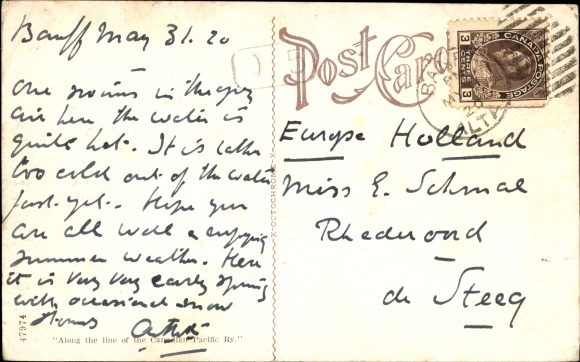 Banff May 31. 20
One swims in the open
air here the water is
quite hot. It is rather
too cold out of the water
just yet. Hope you
are all well & enjoying
summer weather. Here
it is very very early spring
with occasional snow
storms
47974
"Along the line of the Canadian Pacific Ry."
X-OCTOCHROME-X
Post Card
CANADA POSTAGE
3 3
ALTA
Europe Holland
Miss E. Schmal
Rhederoord
de Steeg